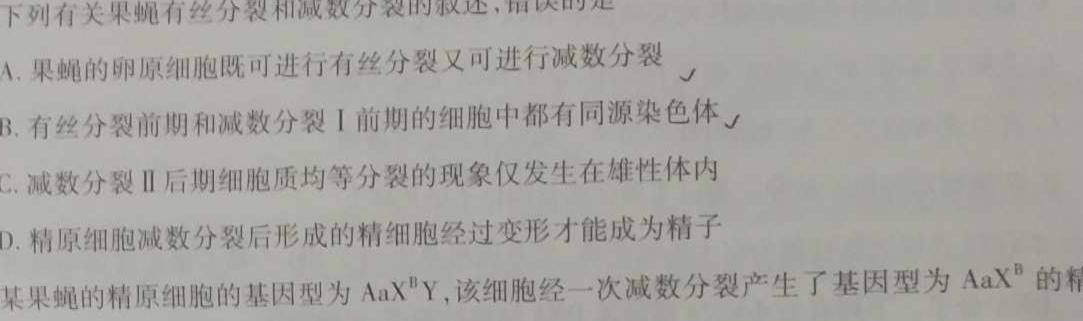 下列有关果蝇有丝分裂和减数分裂的叙述,错误的是
A. 果蝇的卵原细胞既可进行有丝分裂又可进行减数分裂
B. 有丝分裂前期和减数分裂Ⅰ前期的细胞中都有同源染色体
C. 减数分裂Ⅱ后期细胞质均等分裂的现象仅发生在雄性体内
D. 精原细胞减数分裂后形成的精细胞经过变形才能成为精子
某果蝇的精原细胞的基因型为 AaXᴮY,该细胞经一次减数分裂产生了基因型为 AaXᴮ 的精